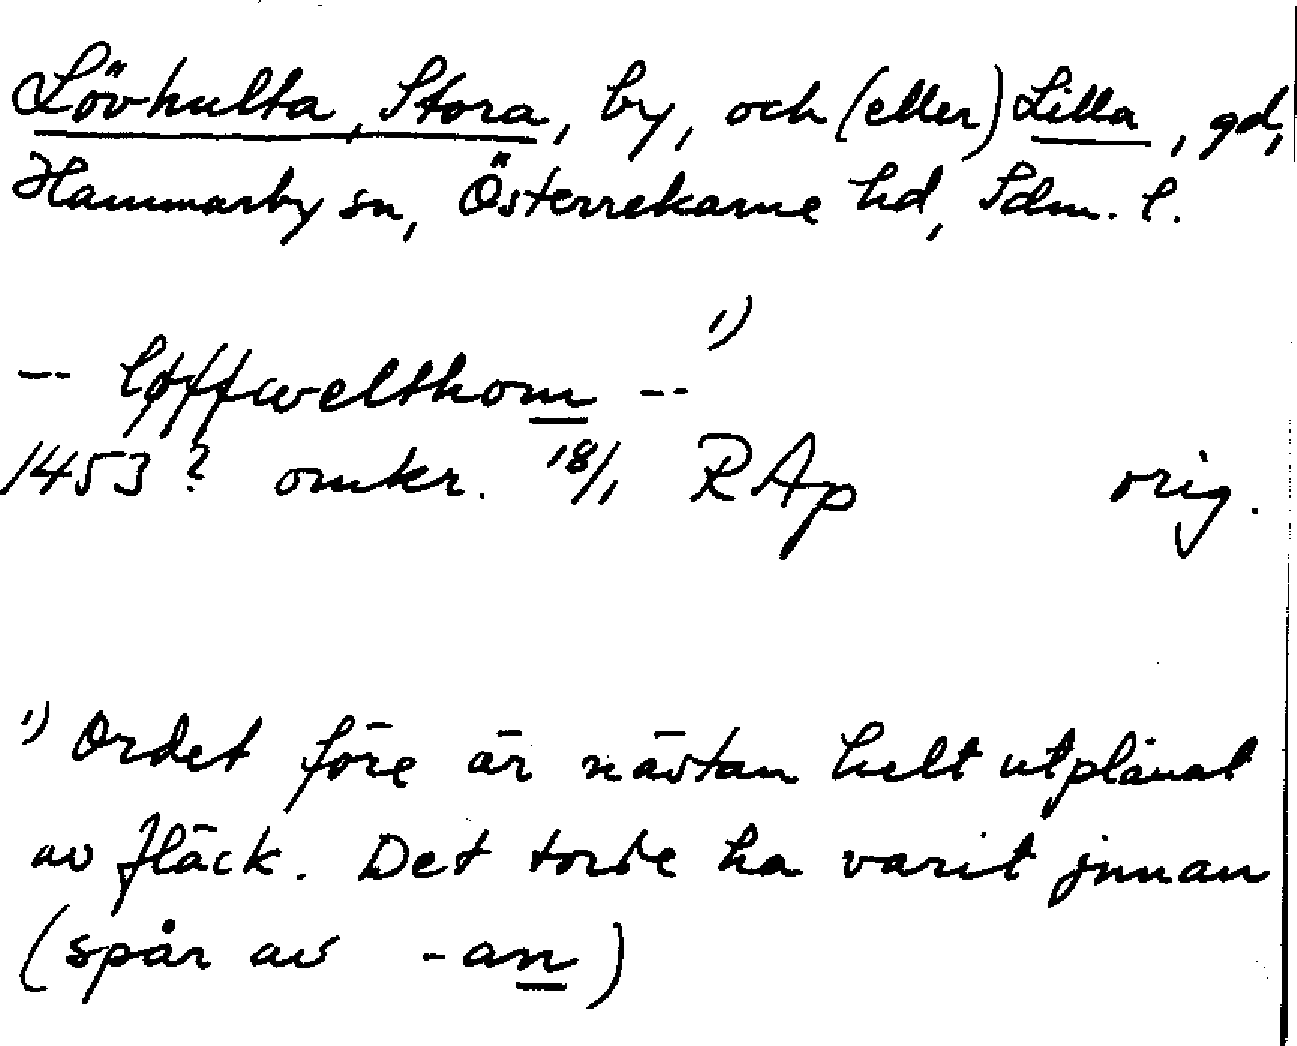 Lövhulta, Stora, by, och (eller) Lilla, gd,
Hammarby sn, Österrekarne hd, Sdm. l.
-- løffwelthom -- 1)
1453? omkr. 18/1 RAp orig.
1) Ordet före är nästan helt utplånat
av fläck. Det torde ha varit jnnan
(spår av -an)